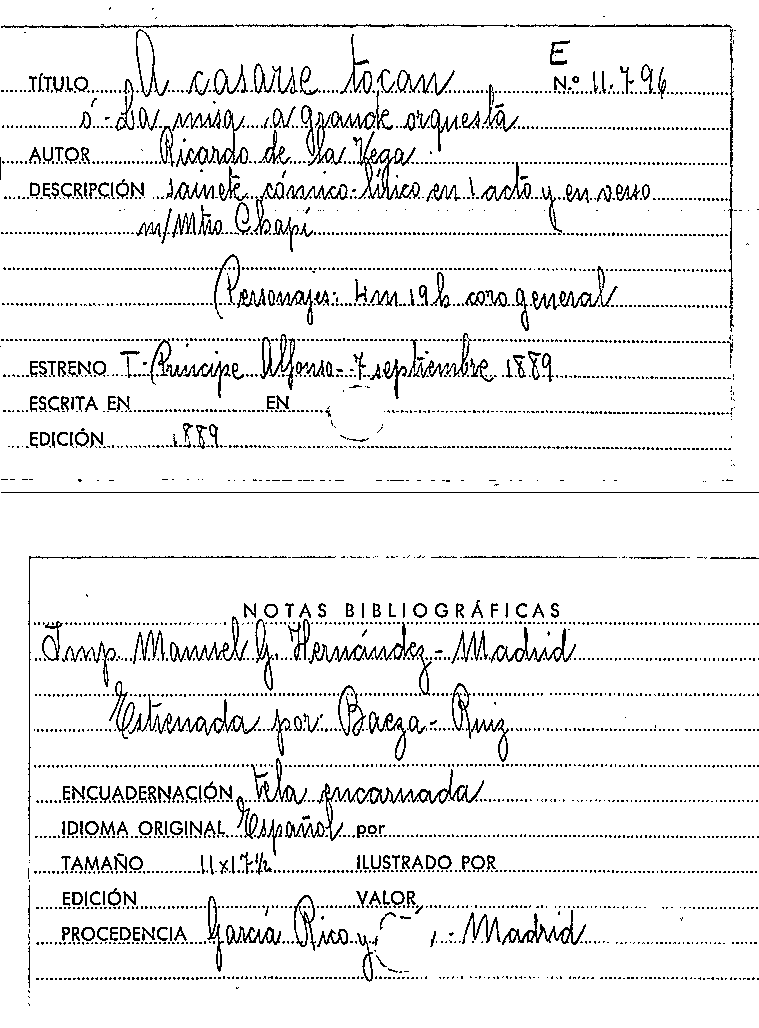 E
TÍTULO A casarse tocan N.º 11.796
ó - La misa a grande orquesta
AUTOR Ricardo de la Vega
DESCRIPCIÓN sainete cómico-lírico en 1 acto y en verso
m/Mtro Chapí
Personajes: 4 m 19 h coro general
ESTRENO T-Príncipe Alfonso-7 septiembre 1889
ESCRITA EN EN
EDICIÓN 1889
NOTAS BIBLIOGRÁFICAS
Imp. Manuel G. Hernández - Madrid
Estrenada por: Baeza - Ruiz
ENCUADERNACIÓN tela encarnada
IDIOMA ORIGINAL Español por
TAMAÑO 11x17½ ILUSTRADO POR
EDICIÓN VALOR
PROCEDENCIA García Rico y - Madrid